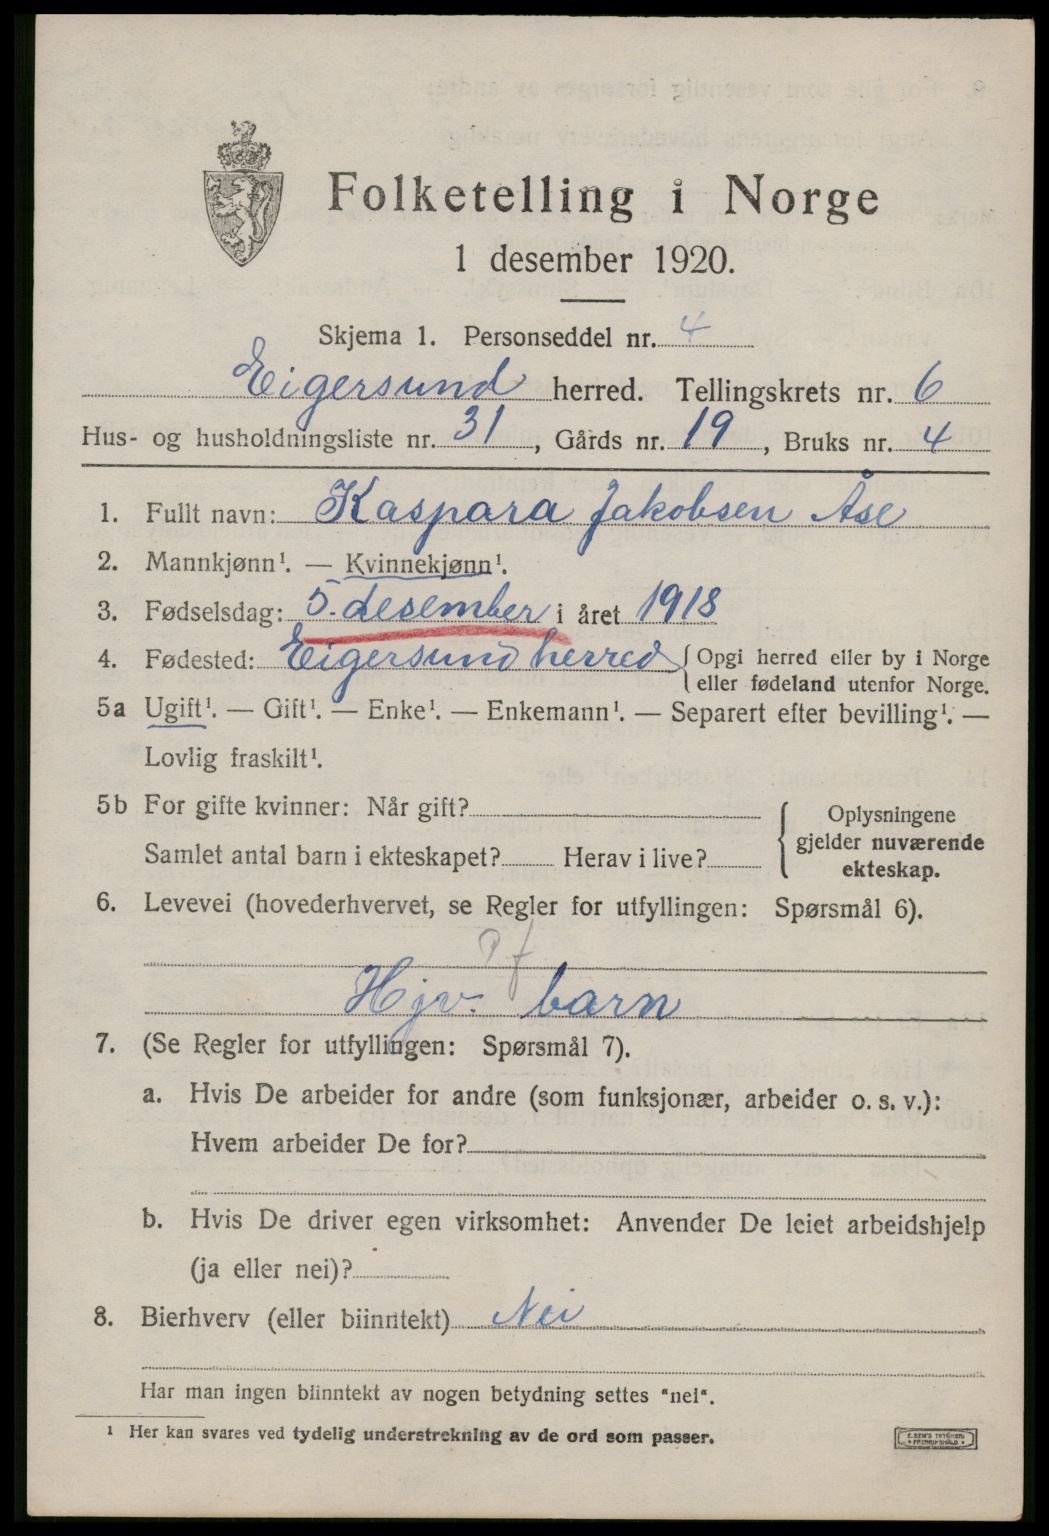 Folketelling i Norge
1 desember 1920.
Skjema 1. Personseddel nr. 4
Eigersund herred. Tellingskrets nr. 6
Hus- og husholdningsliste nr. 31, Gårds nr. 19, Bruks nr. 4
1. Fullt navn: Kaspara Jakobsen Åse
2. Mannkjønn¹. — Kvinnekjønn¹.
3. Fødselsdag: 5. desember i året 1918
4. Fødested: Eigersund herred { Opgi herred eller by i Norge
eller fødeland utenfor Norge.
5a Ugift¹. — Gift¹. — Enke¹. — Enkemann¹. — Separert efter bevilling¹. —
Lovlig fraskilt¹.
5b For gifte kvinner: Når gift?
Samlet antal barn i ekteskapet? Herav i live?
Oplysningene
gjelder nuværende
ekteskap.
6. Levevei (hovederhvervet, se Regler for utfyllingen: Spørsmål 6).
Hjv. barn
7. (Se Regler for utfyllingen: Spørsmål 7).
a. Hvis De arbeider for andre (som funksjonær, arbeider o. s. v.):
Hvem arbeider De for?
b. Hvis De driver egen virksomhet: Anvender De leiet arbeidshjelp
(ja eller nei)?
8. Bierhverv (eller biinntekt) Nei
Har man ingen biinntekt av nogen betydning settes "nei".
¹ Her kan svares ved tydelig understrekning av de ord som passer.
E. SEM'S TRYKKERI
FREDRIKSHALD